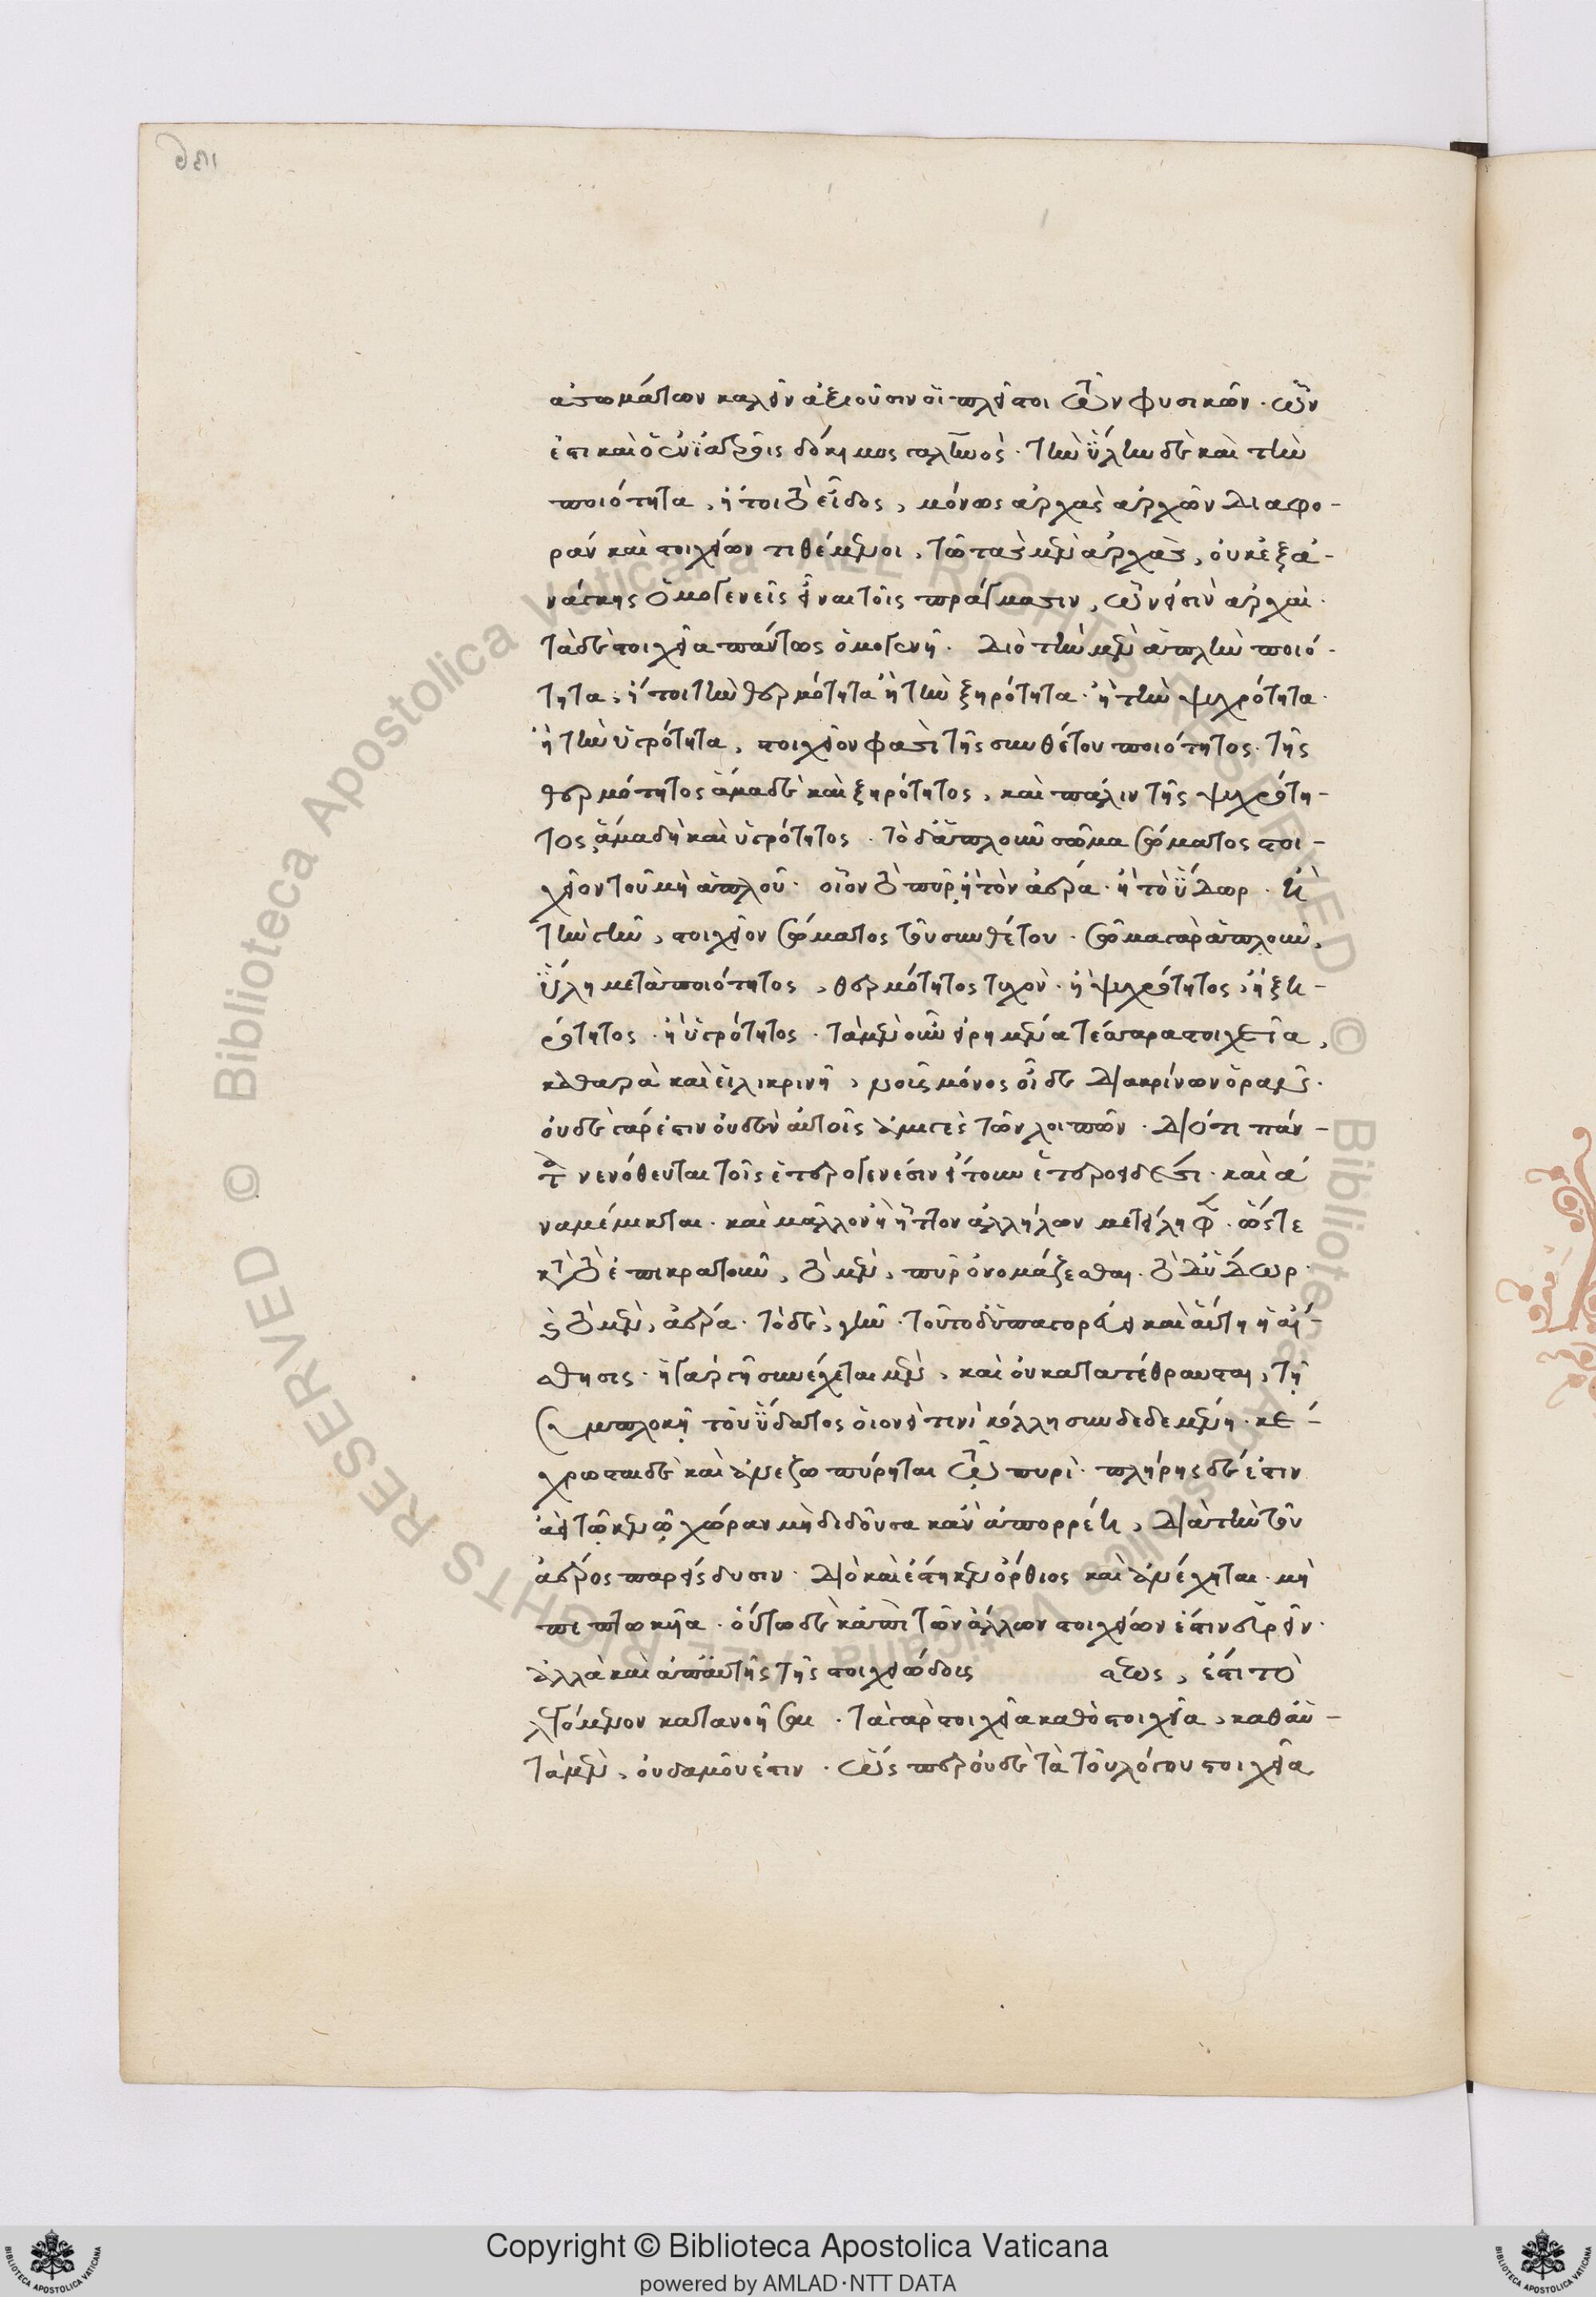 ἀσωμάτων καλεῖν ἀξιοῦσιν οἱ πλεῖστοι τῶν φυσικῶν. ὧν
ἐστι καὶ ὁ ἐν ἰατροῖς δόκιμος γαληνός. τὴν ὕλην δὲ καὶ τὴν
ποιότητα, ἤτοι τὸ εἶδος, μόνως ἀρχὰς ἀρχῶν διαφο-
ρὰν καὶ στοιχείων τιθέμενοι, τῶ τὰς μὲν ἀρχὰς, οὐκ ἐξ ἀ-
νάγκης ὁμογενεῖς εἶναι τοῖς πράγμασιν, ὧν εἰσὶν ἀρχαί.
τὰ δὲ στοιχεῖα πάντως ὁμογενῆ. διὸ τὴν μὲν ἁπλῆν ποιό-
τητα, ἤτοι τὴν θερμότητα ἢ τὴν ξηρότητα. ἢ τὴν ψυχρότητα.
ἢ τὴν ὑγρότητα, στοιχεῖον φασὶ τῆς συνθέτου ποιότητος. τῆς
θερμότητος ἅμα δὲ καὶ ξηρότητος, καὶ πάλιν τῆς ψυχρότη-
τος ἅμα δὴ καὶ ὑγρότητος. τὸ δ' ἁπλοῦν σῶμα σώματος στοι-
χεῖον τοῦ μὴ ἁπλοῦ. οἷον τὸ πῦρ ἢ τὸν ἀέρα. ἢ τὸ ὕδωρ. ἢ
τὴν γῆν, στοιχεῖον σώματος τοῦ συνθέτου. σῶμα γὰρ ἁπλοῦν,
ὕλη μετὰ ποιότητος, θερμότητος τυχὸν. ἢ ψυχρότητος, ἢ ξη-
ρότητος. ἢ ὑγρότητος. τὰ μὲν οὖν εἰρημένα τέσσαρα στοιχεῖα,
καθαρὰ καὶ εἰλικρινῆ, νοῦς μόνος οἶδε διακρίνων ὁρᾶν.
οὐδὲ γάρ ἐστιν οὐδὲν αὐτοῖς ἀμιγὲς τῶν λοιπῶν. διότι πάν-
τα νενόθευται τοῖς ἑτερογενέσιν εἴτουν ἑτεροειδέσι. καὶ ἀ
ναμέμικται. καὶ μᾶλλον ἢ ἧττον ἀλλήλων μετείληφε. ὥστε
κατὰ τὸ ἐπικρατοῦν, τὸ μὲν, πῦρ ὀνομάζεσθαι. τὸ δ' ὕδωρ.
καὶ τὸ μὲν, ἀέρα. τὸ δὲ, γῆν. τοῦτο δ' ὑπαγορεύει καὶ αὐτὴ ἡ αἴ-
σθησις. ἡ γὰρ γῆ συνέχεται μὲν, καὶ οὐ κατατέθραυσται, τῇ
συμπλοκῇ τοῦ ὕδατος οἱονεί τινι κόλλη συνδεδεμένη. κέ-
χρωσται δὲ καὶ ἀνεζωπύρηται τῷ πυρί. πλήρης δέ ἐστιν
ἀεὶ τῷ κενῷ χώραν μὴ διδοῦσα κἂν ἀπορρέη, διὰ τὴν τοῦ
ἀέρος παρείσδυσιν. διὸ καὶ ἕστηκεν ὄρθιος καὶ ἀνέχηται. μὴ
πεπτωκῆα. οὕτω δὲ κἀπὶ τῶν ἄλλων στοιχείων ἐστὶν εὑρεῖν.
ἀλλὰ καὶ ἀπ' αὐτῆς τῆς στοιχειώδους ατος, ἔστι τὸ
λεγόμενον κατανοῆσαι. τὰ γὰρ στοιχεῖα καθὸ στοιχεῖα, καθ' αὑ-
τὰ μὲν, οὐδαμοῦ ἐστιν. ὥσπερ οὐδὲ τὰ τοῦ λόγου στοιχεῖα
Copyright © Biblioteca Apostolica Vaticana
powered by AMLAD·NTT DATA